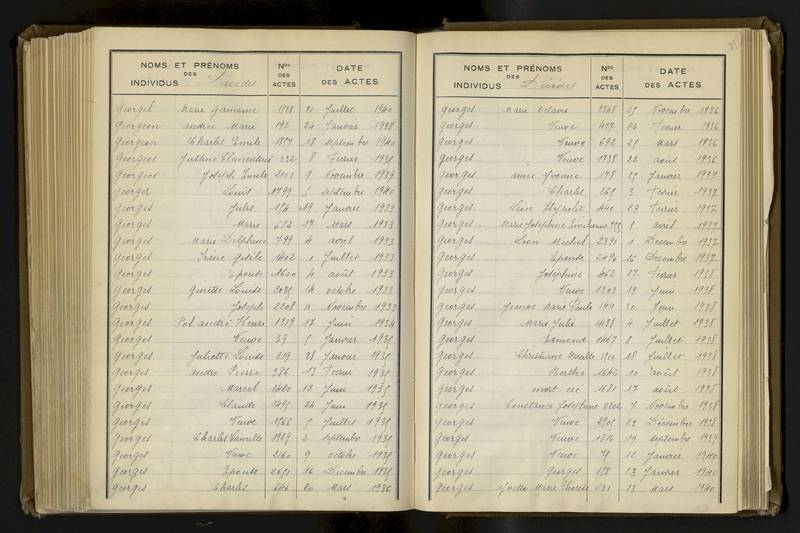 NOMS ET PRÉNOMS DES INDIVIDUS Décédés Nos DES ACTES DATE DES ACTES
Georgel Marie Germaine 1738 21 Juillet 1940
Georgeon Andrée Marie 192 24 Janvier 1938
Georgeon Charles Emile 1857 18 septembre 1940
Georgeot Justine Clementine 332 8 Fevrier 1935
Georgeot Joseph Emile 2101 9 Novembre 1939
Georger Louis 1799 5 septembre 1940
Georges Jules 154 19 Janvier 1933
Georges Marie 682 17 Mars 1933
Georges Marie Delphine 799 4 avril 1933
Georges Irène Gisèle 1402 1 Juillet 1933
Georges Epouse 1600 4 août 1933
Georges Ginette Louise 2035 14 octobre 1933
Georges Joseph 2208 11 Novembre 1933
Georges Pol andré Henri 1319 17 Juin 1934
Georges Veuve 39 5 Janvier 1935
Georges Juliette Louise 219 28 Janvier 1935
Georges andré Pierre 386 13 Fevrier 1935
Georges Marcel 1420 12 Juin 1935
Georges Claude 1495 24 Juin 1935
Georges Veuve 1566 5 Juillet 1935
Georges Charles Camille 1989 2 septembre 1935
Georges Veuve 2160 9 octobre 1935
Georges Epouse 2651 16 Decembre 1935
Georges Charles 646 20 Mars 1936
297
NOMS ET PRÉNOMS DES INDIVIDUS Décédés Nos DES ACTES DATE DES ACTES
Georges Marie Octavie 2348 25 Novembre 1936
Georges Veuve 427 26 Fevrier 1936
Georges Veuve 692 25 Mars 1936
Georges Veuve 1738 22 août 1936
Georges aimé Yvonne 178 25 Janvier 1937
Georges Charles 265 3 Fevrier 1937
Georges Léon Hyppolit 440 23 Fevrier 1937
Georges Marie Joséphine 8 avril 1937
Georges Léon Michel 2391 1 Decembre 1937
Georges Epouse 2496 16 Decembre 1937
Georges Joséphine 462 27 Fevrier 1938
Georges Veuve 1303 13 Juin 1938
Georges Jeanne Marie Paule 144 30 Juin 1938
Georges Marie Julie 1438 4 Juillet 1938
Georges Edmond 1467 8 Juillet 1938
Georges Christiane Mireille 1510 18 Juillet 1938
Georges Berthe 1642 10 août 1938
Georges mort né 1681 17 août 1938
Georges Constance Joséphine 2202 7 Novembre 1938
Georges Veuve 2505 23 Décembre 1938
Georges Veuve 1816 19 septembre 1939
Georges Veuve 75 12 Janvier 1940
Georges Georges 158 23 Janvier 1940
Georges Yvette Marie Thérèse 631 13 Mars 1940